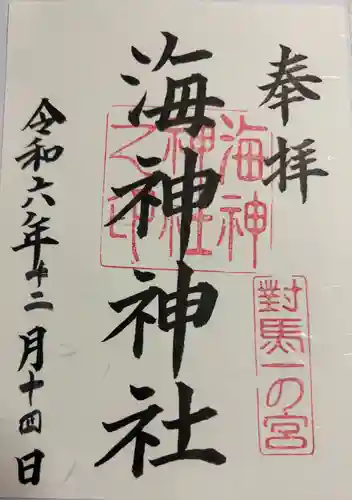 奉拝
海神神社
海神
神社
之印
對馬一の宮
令和六年十二月十四日